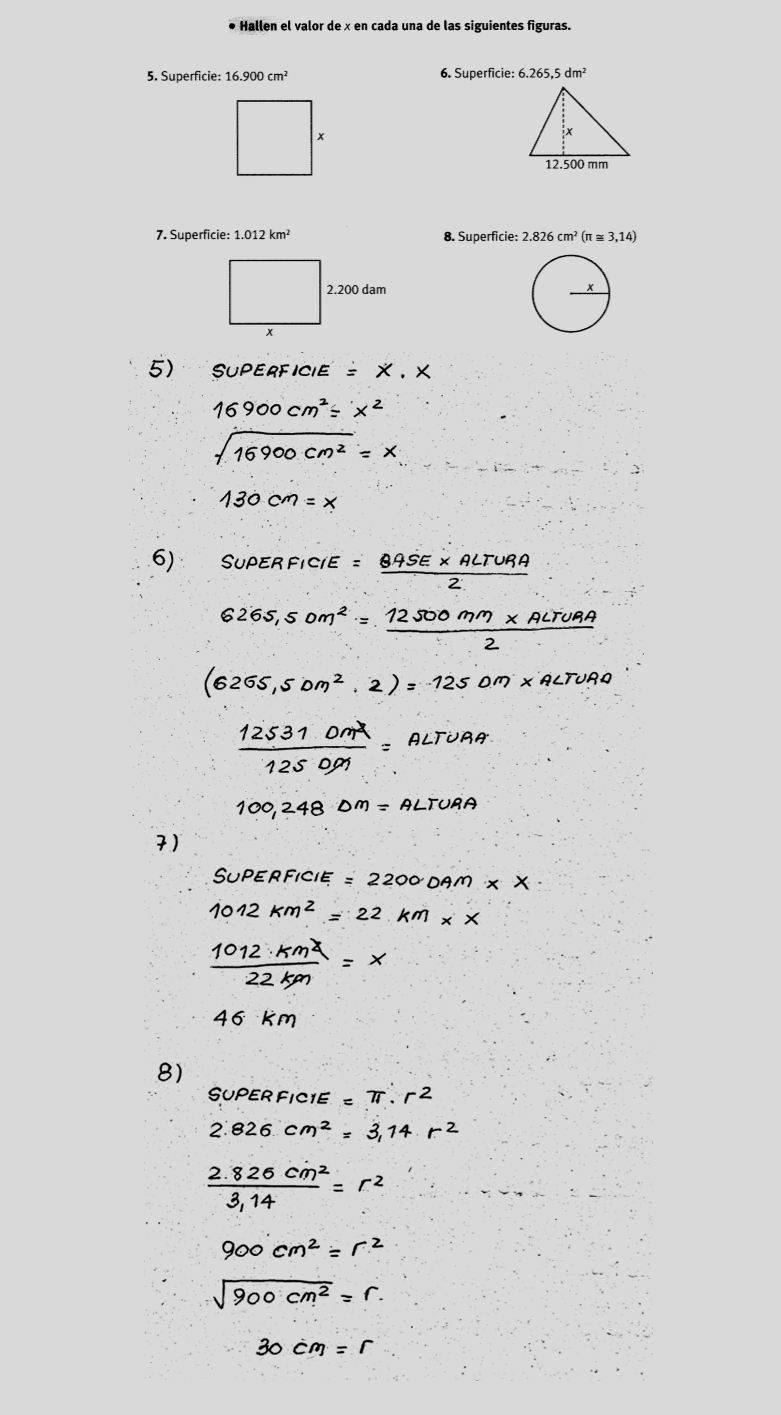 • Hallen el valor de x en cada una de las siguientes figuras.
5. Superficie: 16.900 cm²
x
6. Superficie: 6.265,5 dm²
x
12.500 mm
7. Superficie: 1.012 km²
2.200 dam
x
8. Superficie: 2.826 cm² (π ≅ 3,14)
x
5) SUPERFICIE = X . X
16900 cm² = x²
√16900 cm² = x
130 cm = x
6) SUPERFICIE = BASE x ALTURA / 2
6265,5 Dm² = 12500 mm x ALTURA / 2
(6265,5 Dm² . 2) = 125 Dm x ALTURA
12531 Dm² / 125 Dm = ALTURA
100,248 Dm = ALTURA
7)
SUPERFICIE = 2200 DAM x X
1012 km² = 22 km x X
1012 km² / 22 km = x
46 km
8)
SUPERFICIE = π . r²
2.826 cm² = 3,14 r²
2.826 cm² / 3,14 = r²
900 cm² = r²
√900 cm² = r.
30 cm = r